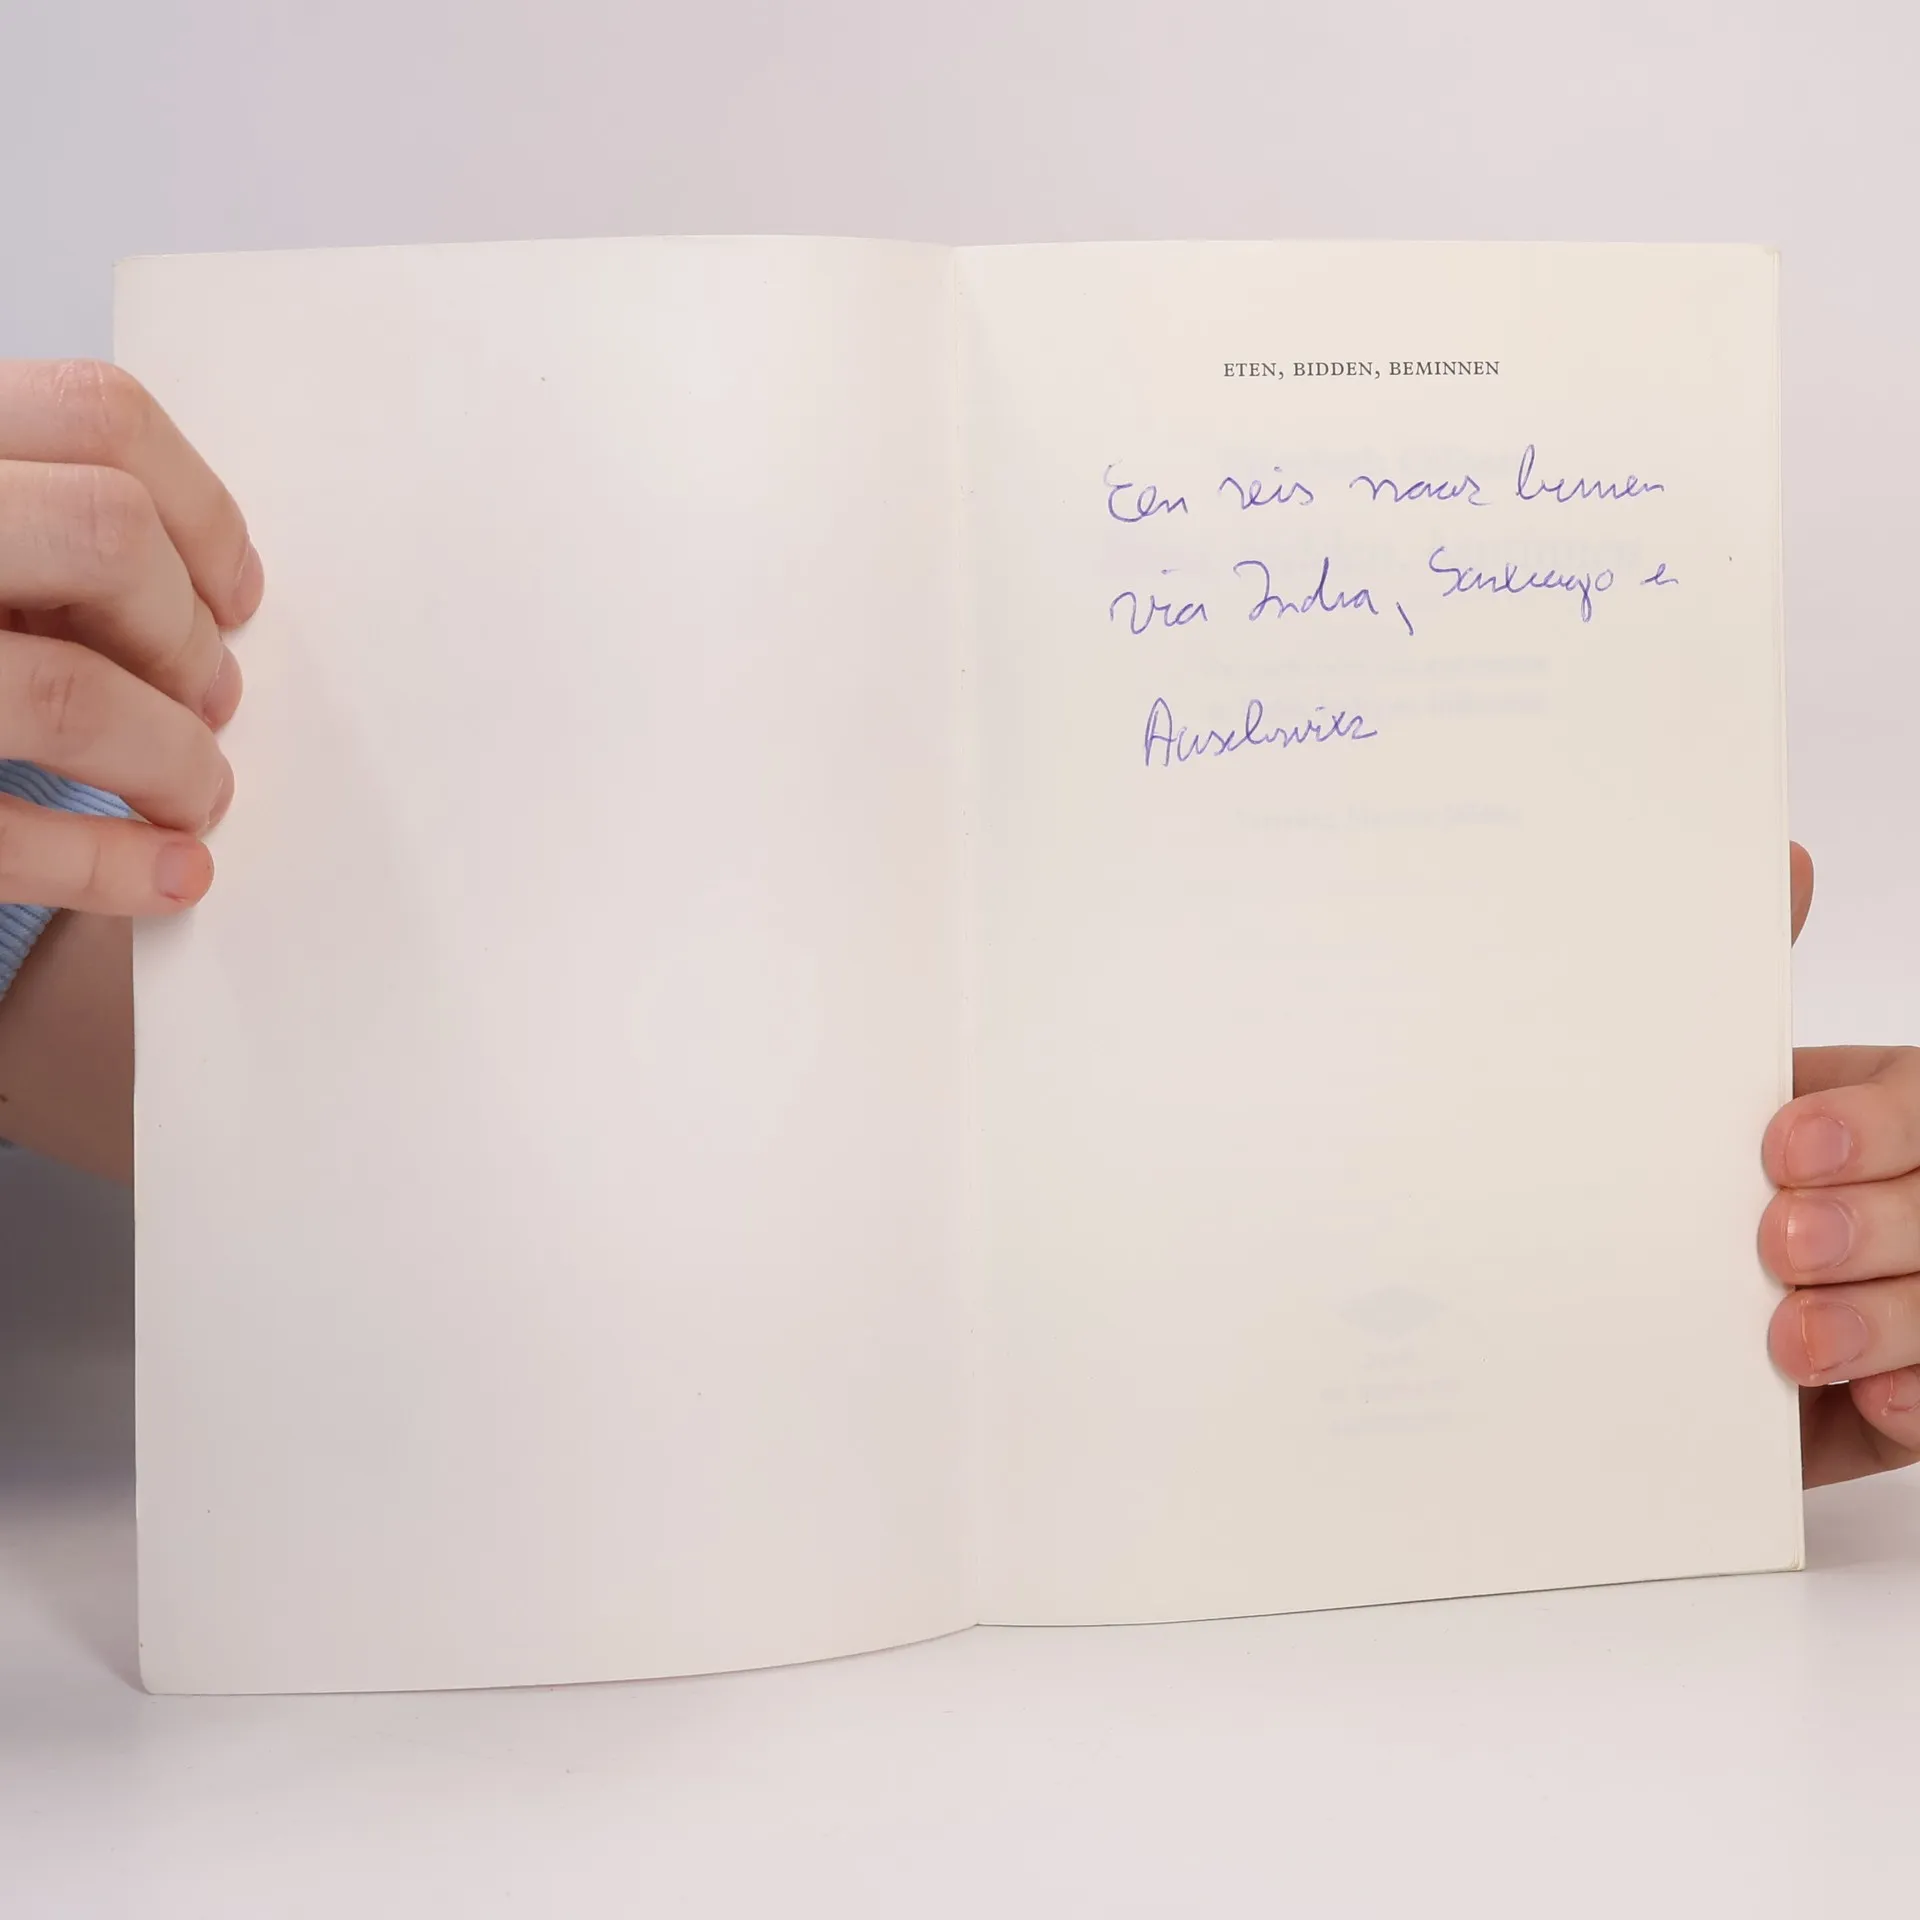 ETEN, BIDDEN, BEMINNEN
Een reis naar binnen
via India, Santiago en
Auschwitz